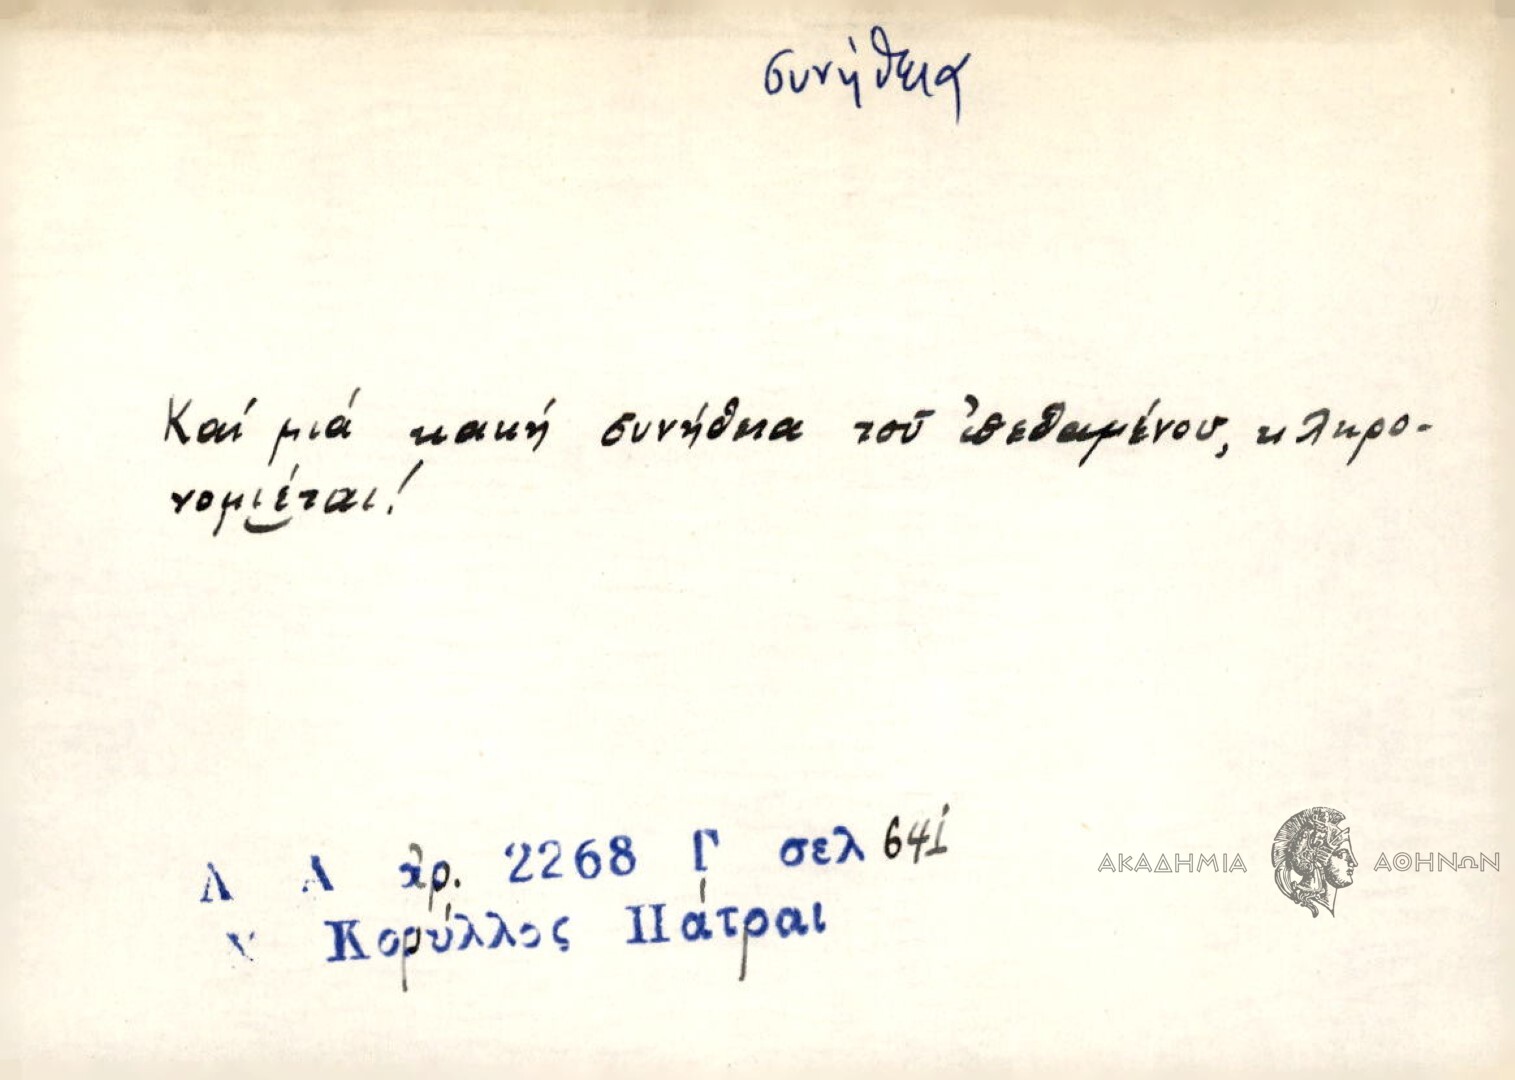 συνήθεια
Καί μιά κακή συνήθεια τοῦ ἀπεθαμένου, κληρο-
νομιέται!
Λ Α ἀρ. 2268 Γ σελ 641
Χ Κορύλλος Πάτραι
ΑΚΑΔΗΜΙΑ ΑΘΗΝΩΝ